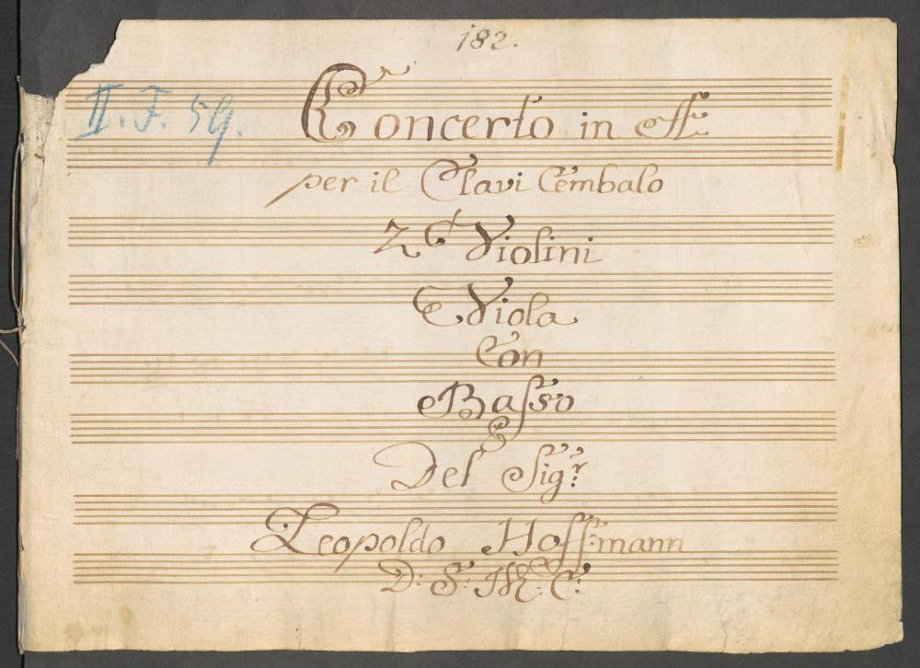 182.
II. F. 59.
Concerto in F:
per il Clavi Cembalo
2 Violini
Viola
Con
Basso
Del Sigr:
Leopoldo Hoffmann
D: S: